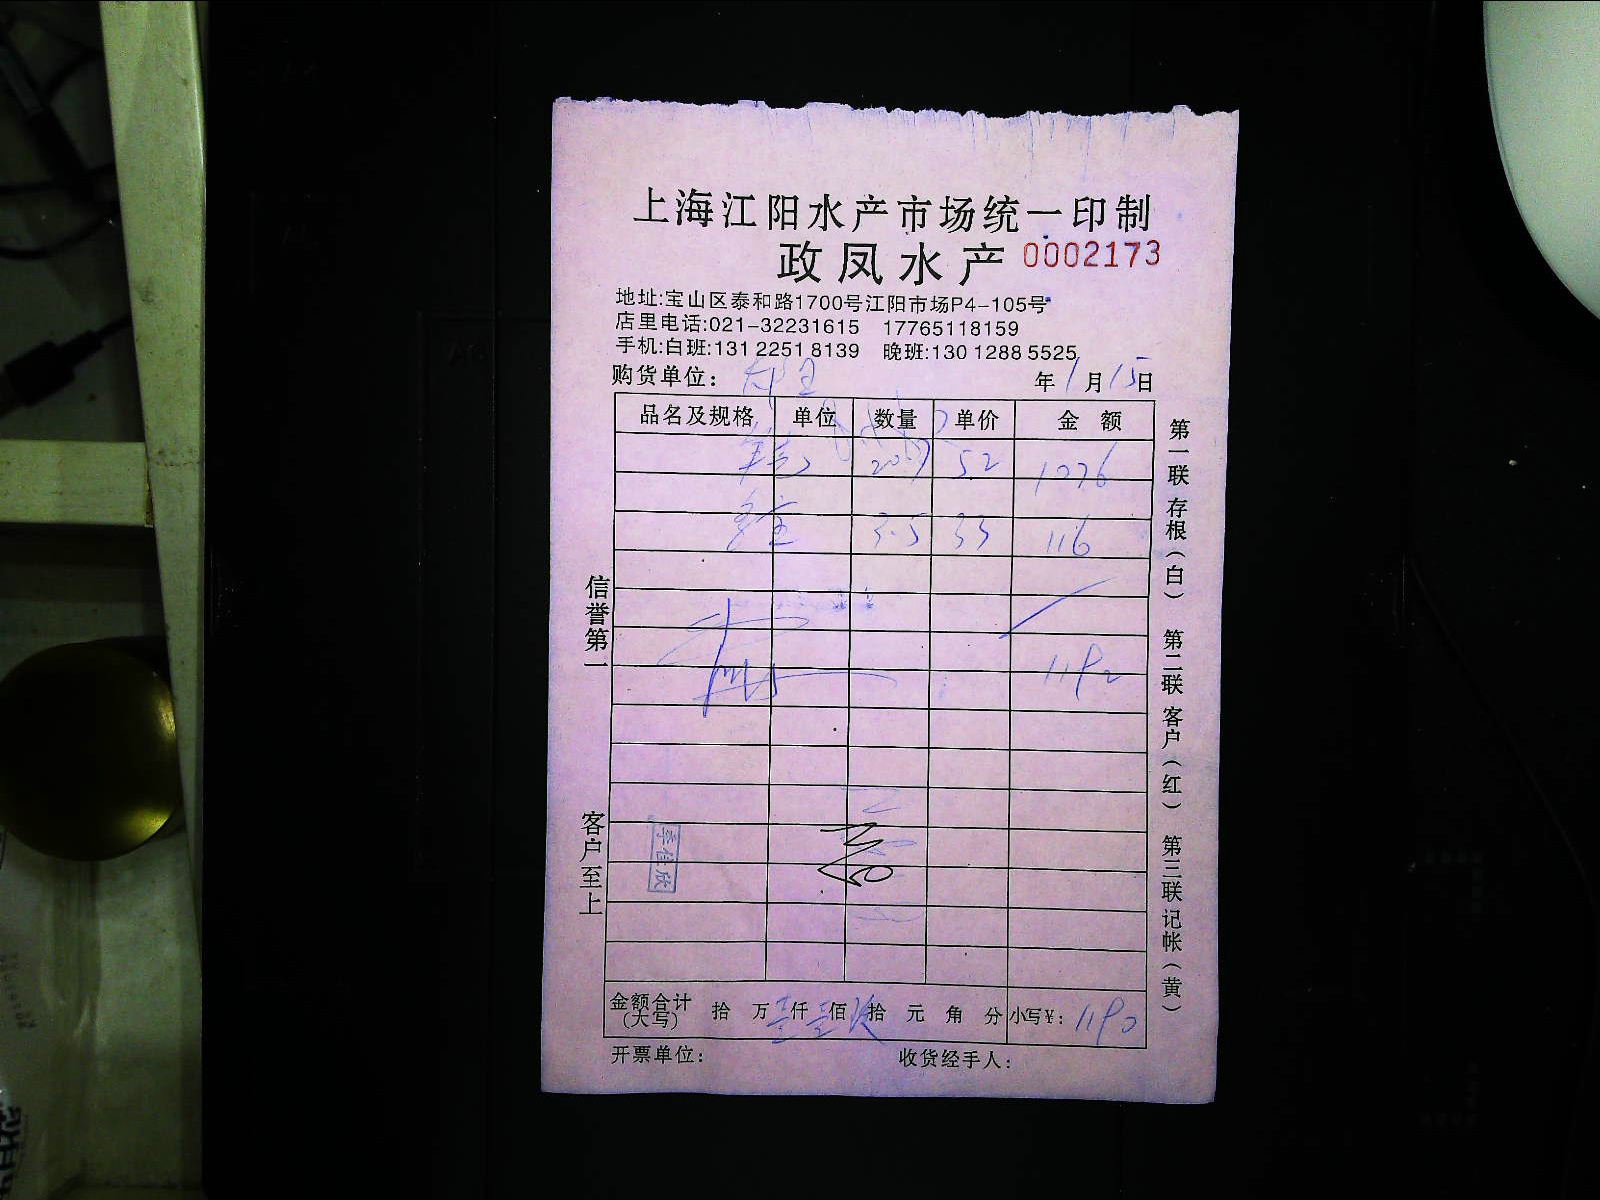 上海江阳水产市场统一印制
政凤水产 0002173
地址:宝山区泰和路1700号江阳市场P4-105号
店里电话:021-32231615 17765118159
手机:白班:131 2251 8139 晚班:130 1288 5525
购货单位: 年 1 月 15 日
品名及规格 单位 数量 单价 金额
20.7 52 1076
3.5 33 116
1192
李佳欣
金额合计(大写) 拾 万 壹 仟 壹 佰 玖 拾 元 角 分 小写¥: 1190
开票单位: 收货经手人:
信誉第一
客户至上
第一联存根(白) 第二联客户(红) 第三联记帐(黄)